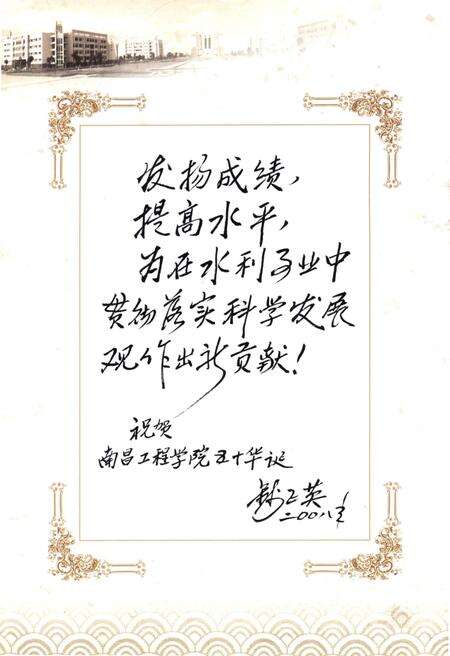 发扬成绩，
提高水平，
为在水利事业中
贯彻落实科学发展
观作出新贡献！
祝贺
南昌工程学院五十华诞
钱正英
二〇〇八年